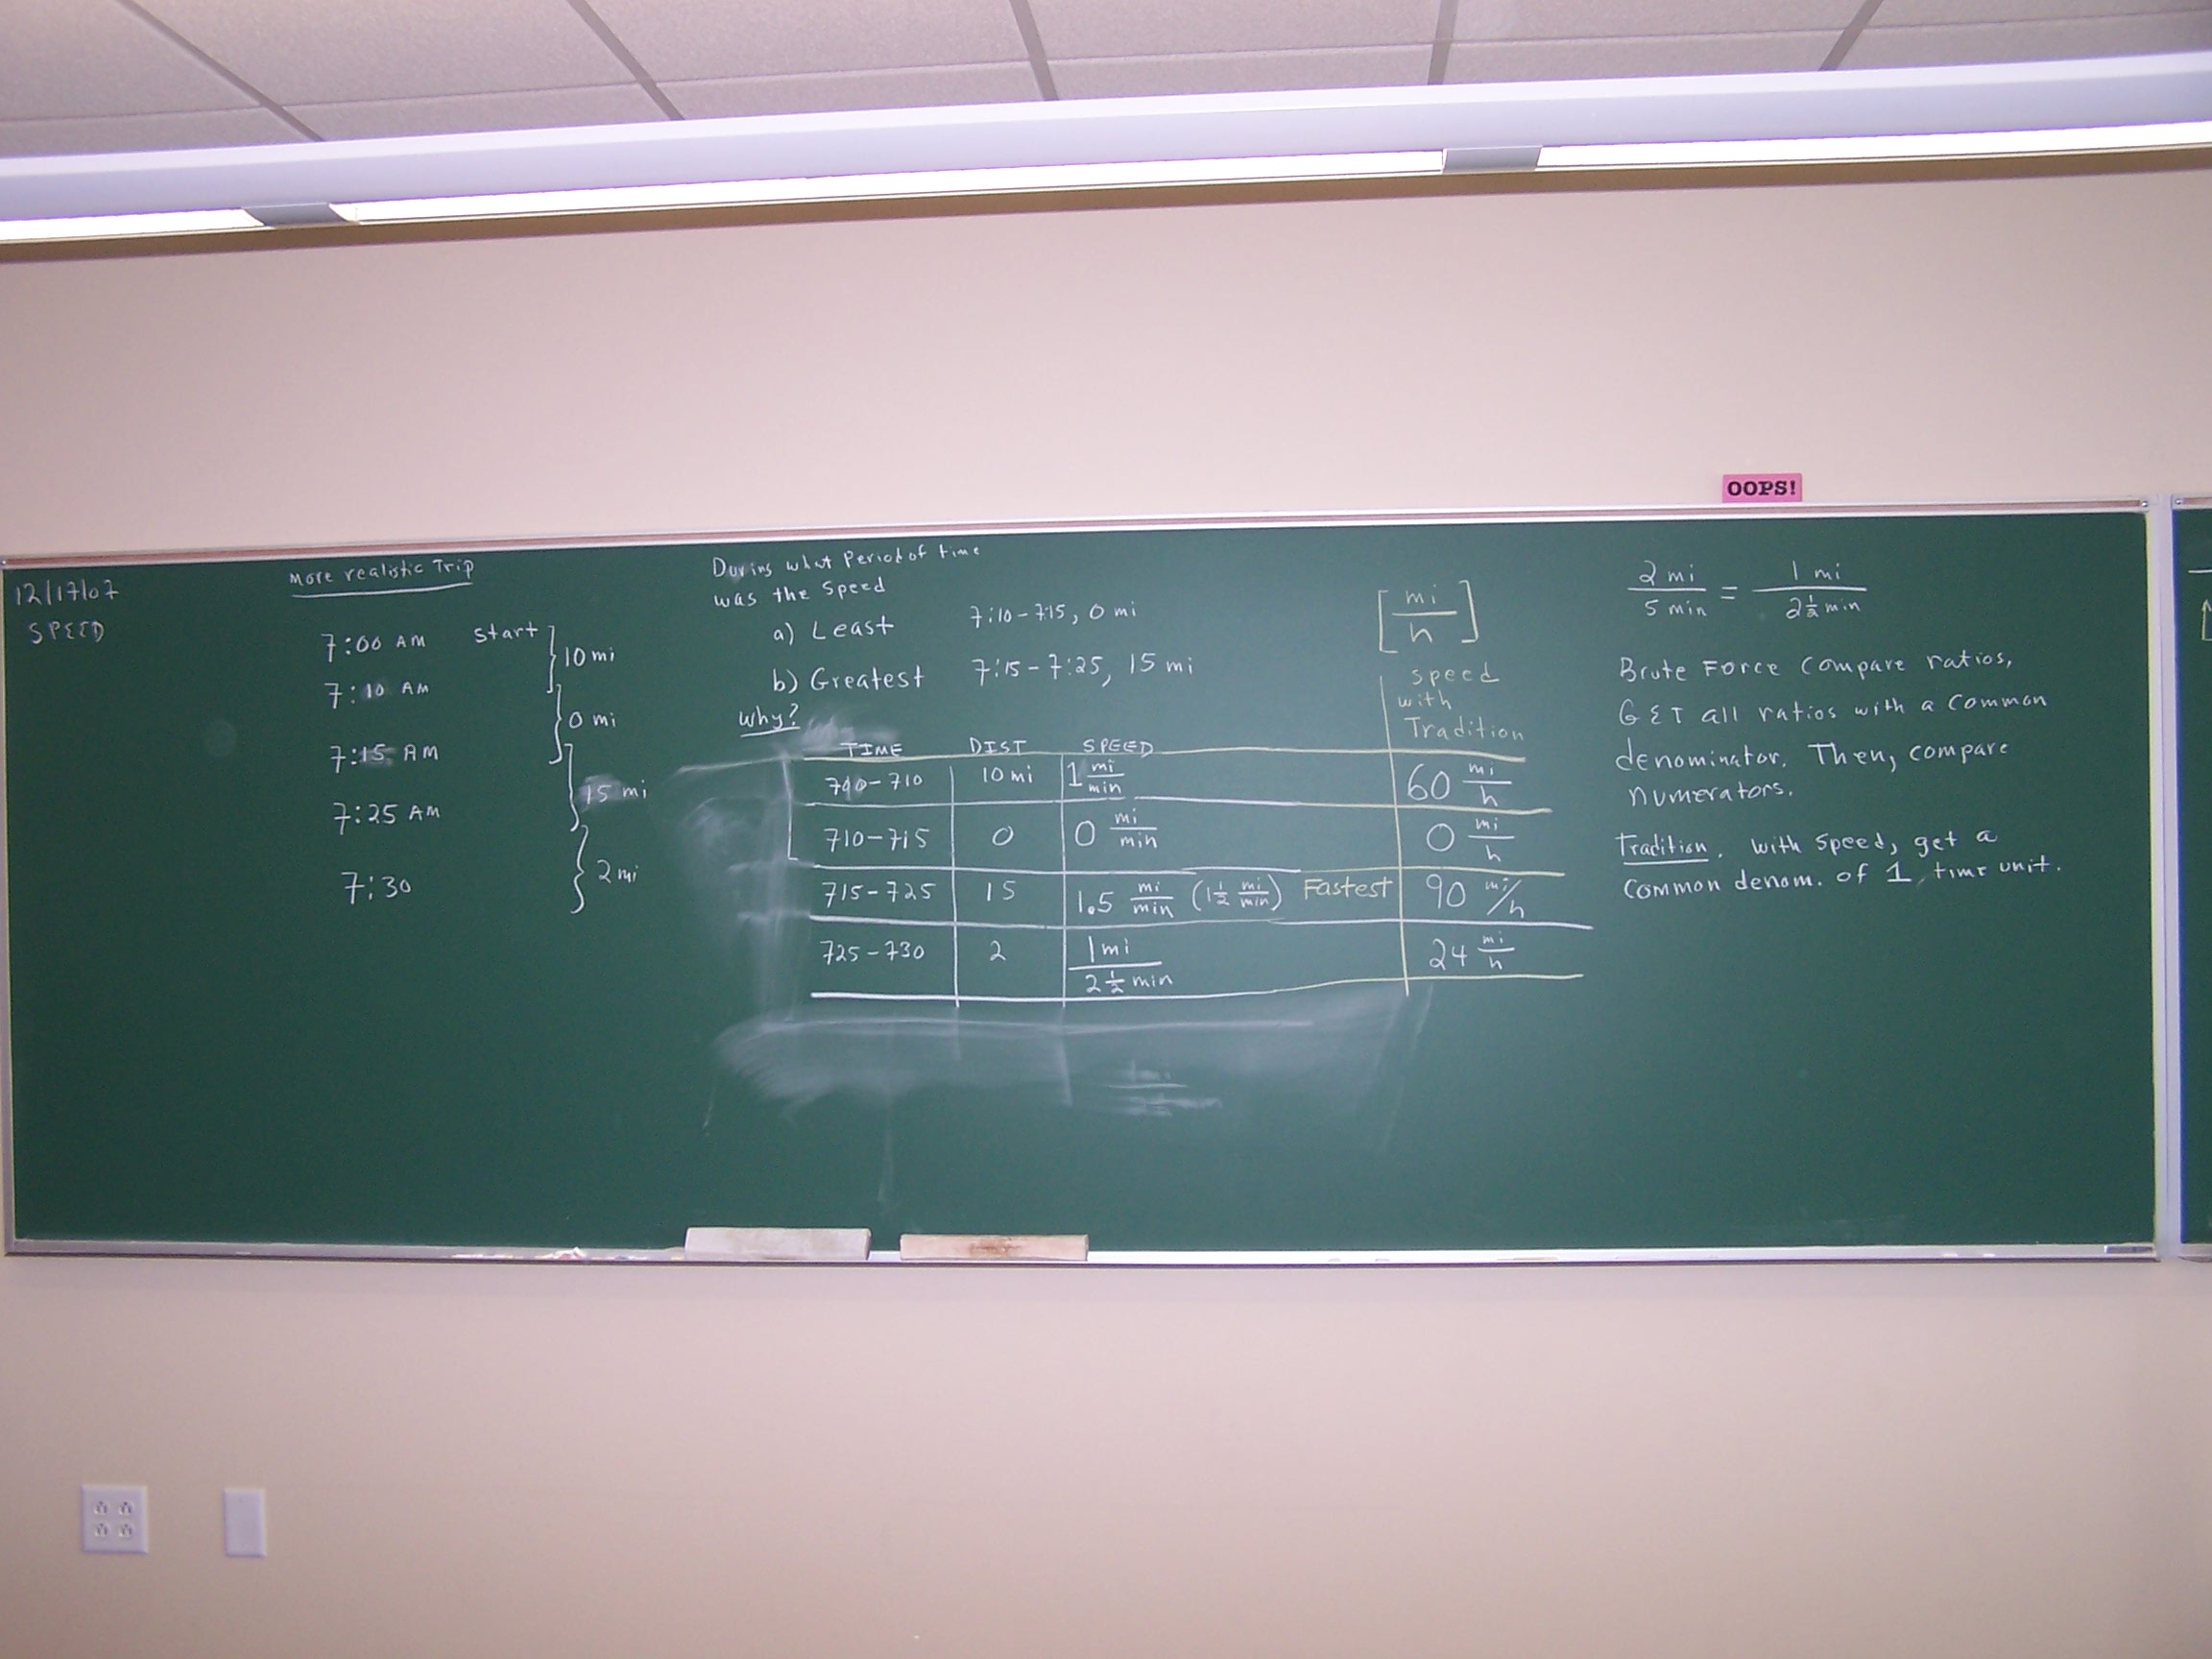 OOPS!
12/17/07
SPEED
More realistic Trip
7:00 AM start
10 mi
7:10 AM
0 mi
7:15 AM
15 mi
7:25 AM
2 mi
7:30
During what Period of time
was the Speed
a) Least 7:10-7:15, 0 mi
b) Greatest 7:15-7:25, 15 mi
Why?
[mi/h]
speed
with
Tradition
TIME DIST SPEED
700-710 10 mi 1 mi/min 60 mi/h
710-715 0 0 mi/min 0 mi/h
715-725 15 1.5 mi/min (1 1/2 mi/min) Fastest 90 mi/h
725-730 2 1 mi/2 1/2 min 24 mi/h
2 mi/5 min = 1 mi/2 1/2 min
Brute Force Compare ratios,
GET all ratios with a common
denominator. Then, compare
numerators.
Tradition. With Speed, get a
common denom. of 1 time unit.